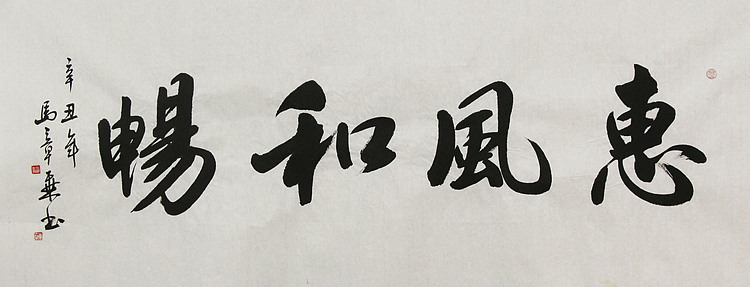 惠風和暢
辛丑年
馬章乘书